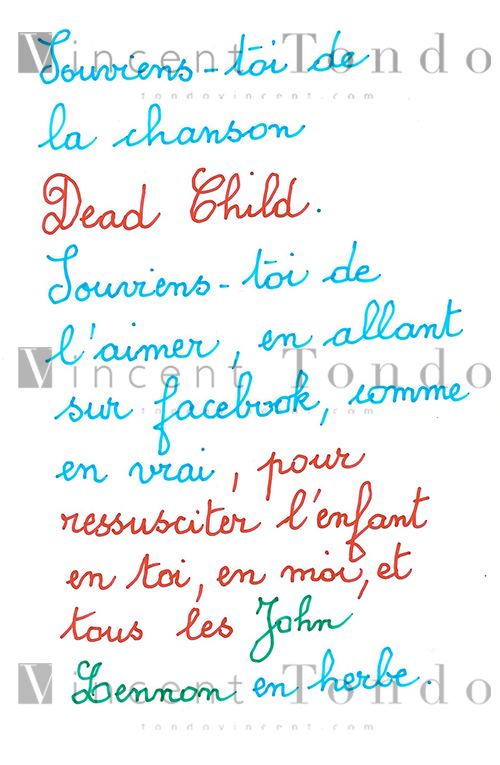 Souviens-toi de
la chanson
Dead Child.
Souviens-toi de
l'aimer, en allant
sur facebook, comme
en vrai, pour
ressusciter l'enfant
en toi, en moi, et
tous les John
Lennon en herbe.
Vincent Tondo
tondovincent.com
Vincent Tondo
tondovincent.com
Vincent Tondo
tondovincent.com